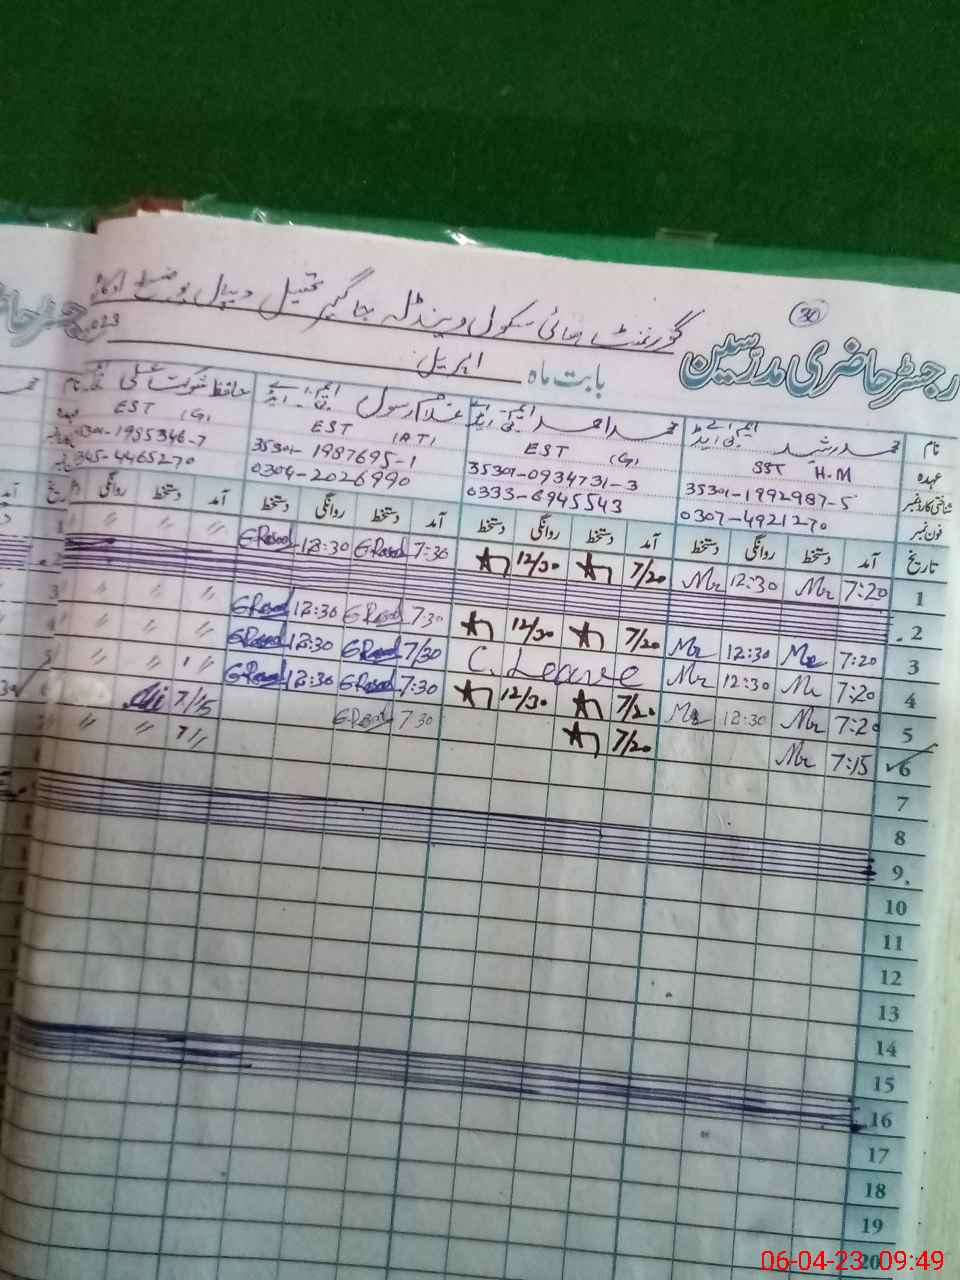 30
رجسٹر حاضری مدرسین
گورنمنٹ ہائی سکول وینڈلہ جاگیر تحصیل دیپال پور ضلع اوکاڑہ
بابت ماہ اپریل 023
نام محمد رشید ایم اے بی ایڈ محمد احمد ایم اے بی ایڈ غلام رسول ایم اے بی ایڈ حافظ شوکت علی
عہدہ SST H.M EST (G) EST (AT) EST (G)
شناختی کارڈ نمبر 35301-1992987-5 35301-0934731-3 35301-1987695-1 5301-1955346-7
فون نمبر 0307-4921270 0333-6945543 0304-2026990 345-4465270
تاریخ آمد دستخط روانگی دستخط آمد دستخط روانگی دستخط آمد دستخط روانگی دستخط آمد دستخط روانگی
1 7:20 12:30 7/20 12/30 7:30 GRasool 12:30 GRasool
2
3 7:20 12:30 7/20 12/30 7:30 GRasool 12:30 GRasool
4 7:20 12:30 C. Leave 7/30 GRasool 12:30 GRasool
5 7:20 12:30 7/20 12/30 7:30 GRasool 12:30 GRasool
6 7:15 7/20 7:30 GRasool 7/15
7
8
9
10
11
12
13
14
15
16
17
18
19
20
06-04-23 09:49